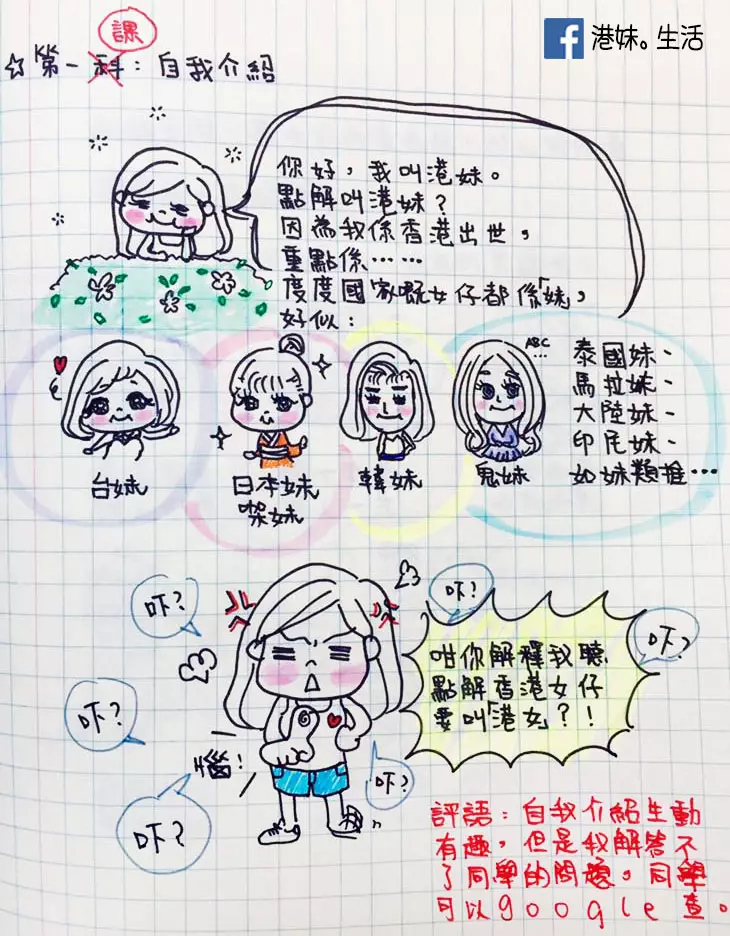 港妹。生活
課
☆第一科：自我介紹
你好，我叫港妹。
點解叫港妹？
因為我係香港出世，
重點係……
度度國家嘅女仔都係「妹」，
好似：
ABC
...
泰國妹、
馬拉妹、
大陸妹、
印尼妹、
如妹類推…
台妹
日本妹
喫妹
韓妹
鬼妹
吓？
吓？
吓？
咁你解釋我聽
點解香港女仔
要叫「港女」？！
吓？
嬲！
吓？
吓？
評語：自我介紹生動
有趣，但是我解答不
了同學的問題。同學
可以google查。